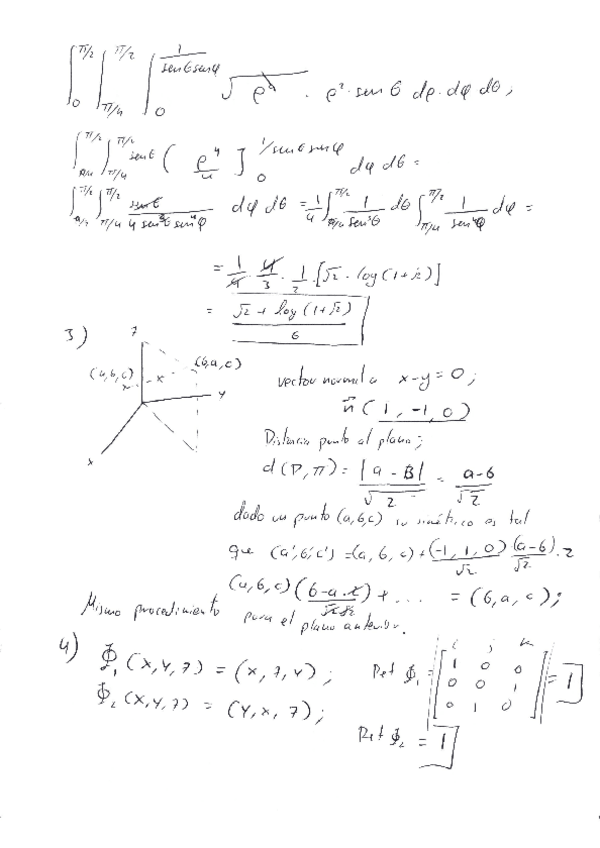 ∫₀^{π/2} ∫_{π/4}^{π/2} ∫₀^{1/senθ senφ} √ρ² · ρ² · senθ dρ · dφ dθ;
∫^{π/2} ∫_{π/4}^{π/2} senθ ( ρ⁴/4 ]₀^{1/senθ senφ} dφ dθ =
∫^{π/2} ∫_{π/4}^{π/2} senθ / 4 sen⁴θ sen⁴φ dφ dθ = 1/4 ∫^{π/2} 1/sen³θ dθ ∫_{π/4}^{π/2} 1/sen⁴φ dφ =
= 1/4 · 4/3 · 1/2 · [√2 · log(1+√2)]
= √2 + log(1+√2) / 6
3)
z
(a,b,c)
x
(b,a,c)
y
x
vector normal a x-y=0;
n (1, -1, 0)
Distancia punto al plano;
d(P,π) = |a - B| / √2 = a-b / √2
dado un punto (a,b,c) su simétrico es tal
que (a',b',c') = (a,b,c) + (-1,1,0)/√2 (a-b)/√2 · 2
(a,b,c) (b-a·2 / √2√2) + ... = (b,a,c);
Mismo procedimiento para el plano anterior.
4) Φ₁(x,y,z) = (x,z,y); Det Φ₁ = i j k [1 0 0
0 0 1
0 1 0] = 1
Φ₂(x,y,z) = (y,x,z);
Det Φ₂ = 1